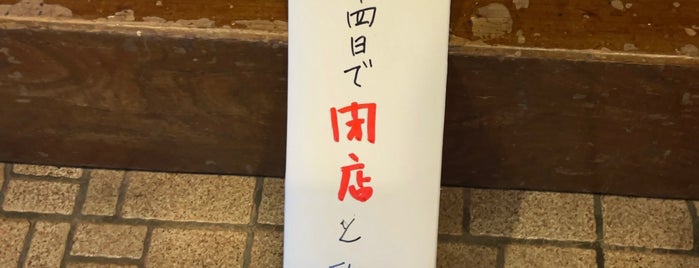 四日で閉店と